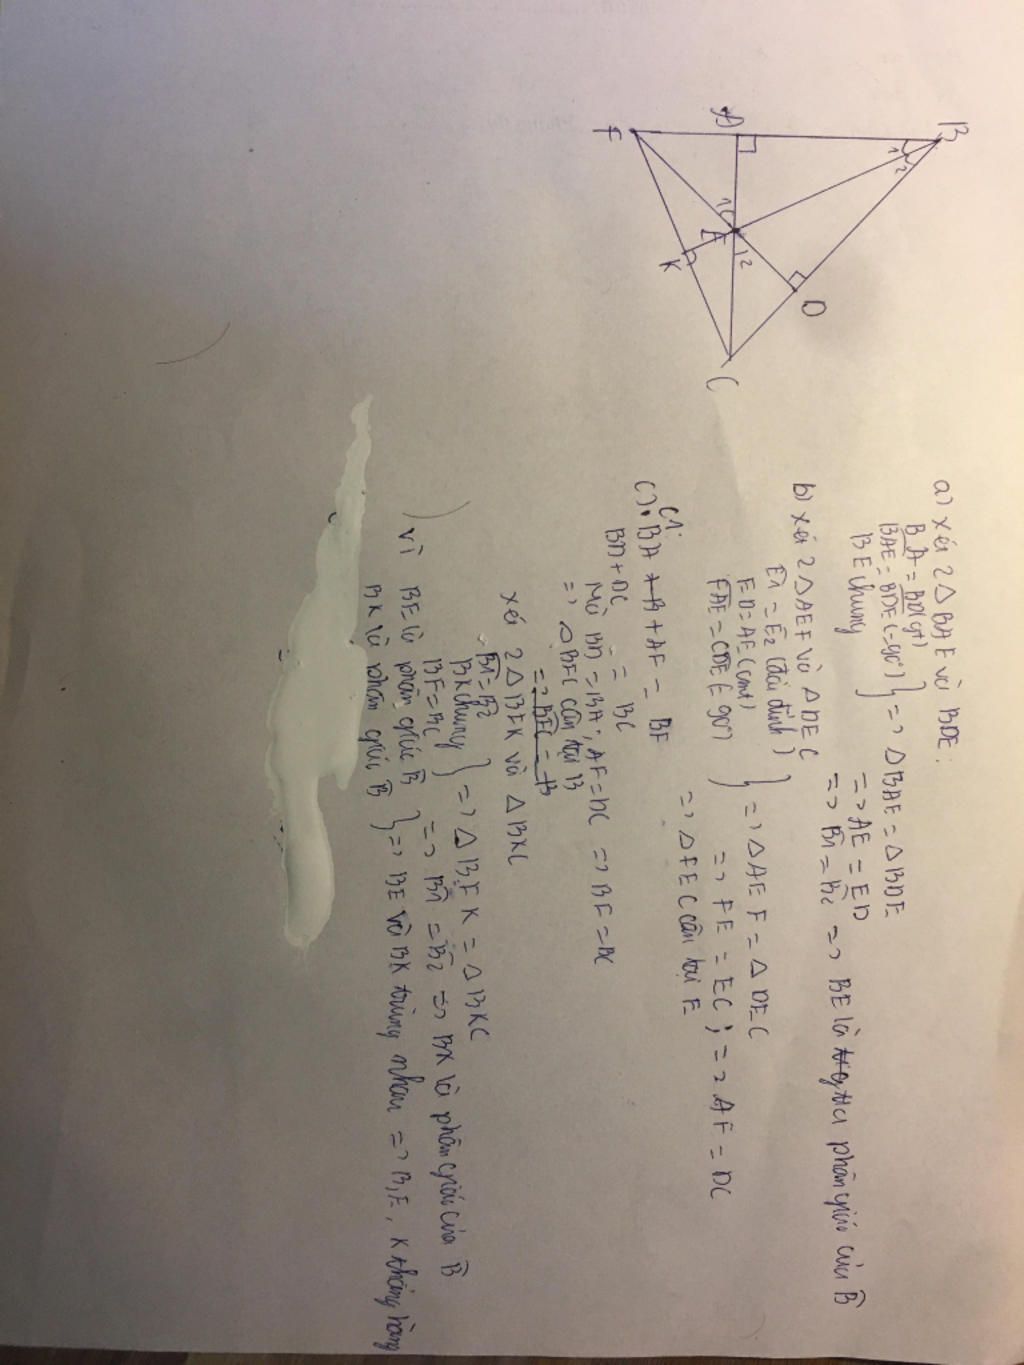 B
A
F
1
2
D
E
1
2
K
C
a) xét 2 Δ BAE và BDE:
BA = BD (gt)
BAE = BDE (=90°) } => Δ BAE = Δ BDE
BE chung
=> AE = ED
=> B1 = B2 => BE là phân giác của B
b) xét 2 Δ AEF và Δ DEC
E1 = E2 (đối đỉnh)
ED = AE (cmt) } => Δ AEF = Δ DEC
FAE = CDE (90°)
=> FE = EC ; => AF = DC
=> Δ FEC cân tại E
C1:
c) BA + AF = BF
BD + DC = BC
Mà BD = BA ; AF = DC => BF = BC
=> Δ BFC cân tại B
=> BFC = B
xét 2 Δ BFK và Δ BKC
B1 = B2
BK chung } => Δ BFK = Δ BKC
BF = BC
=> B1 = B2 => BK là phân giác của B
vì BE là phân giác B
BK là phân giác B } => BE và BK trùng nhau => B, E, K thẳng hàng